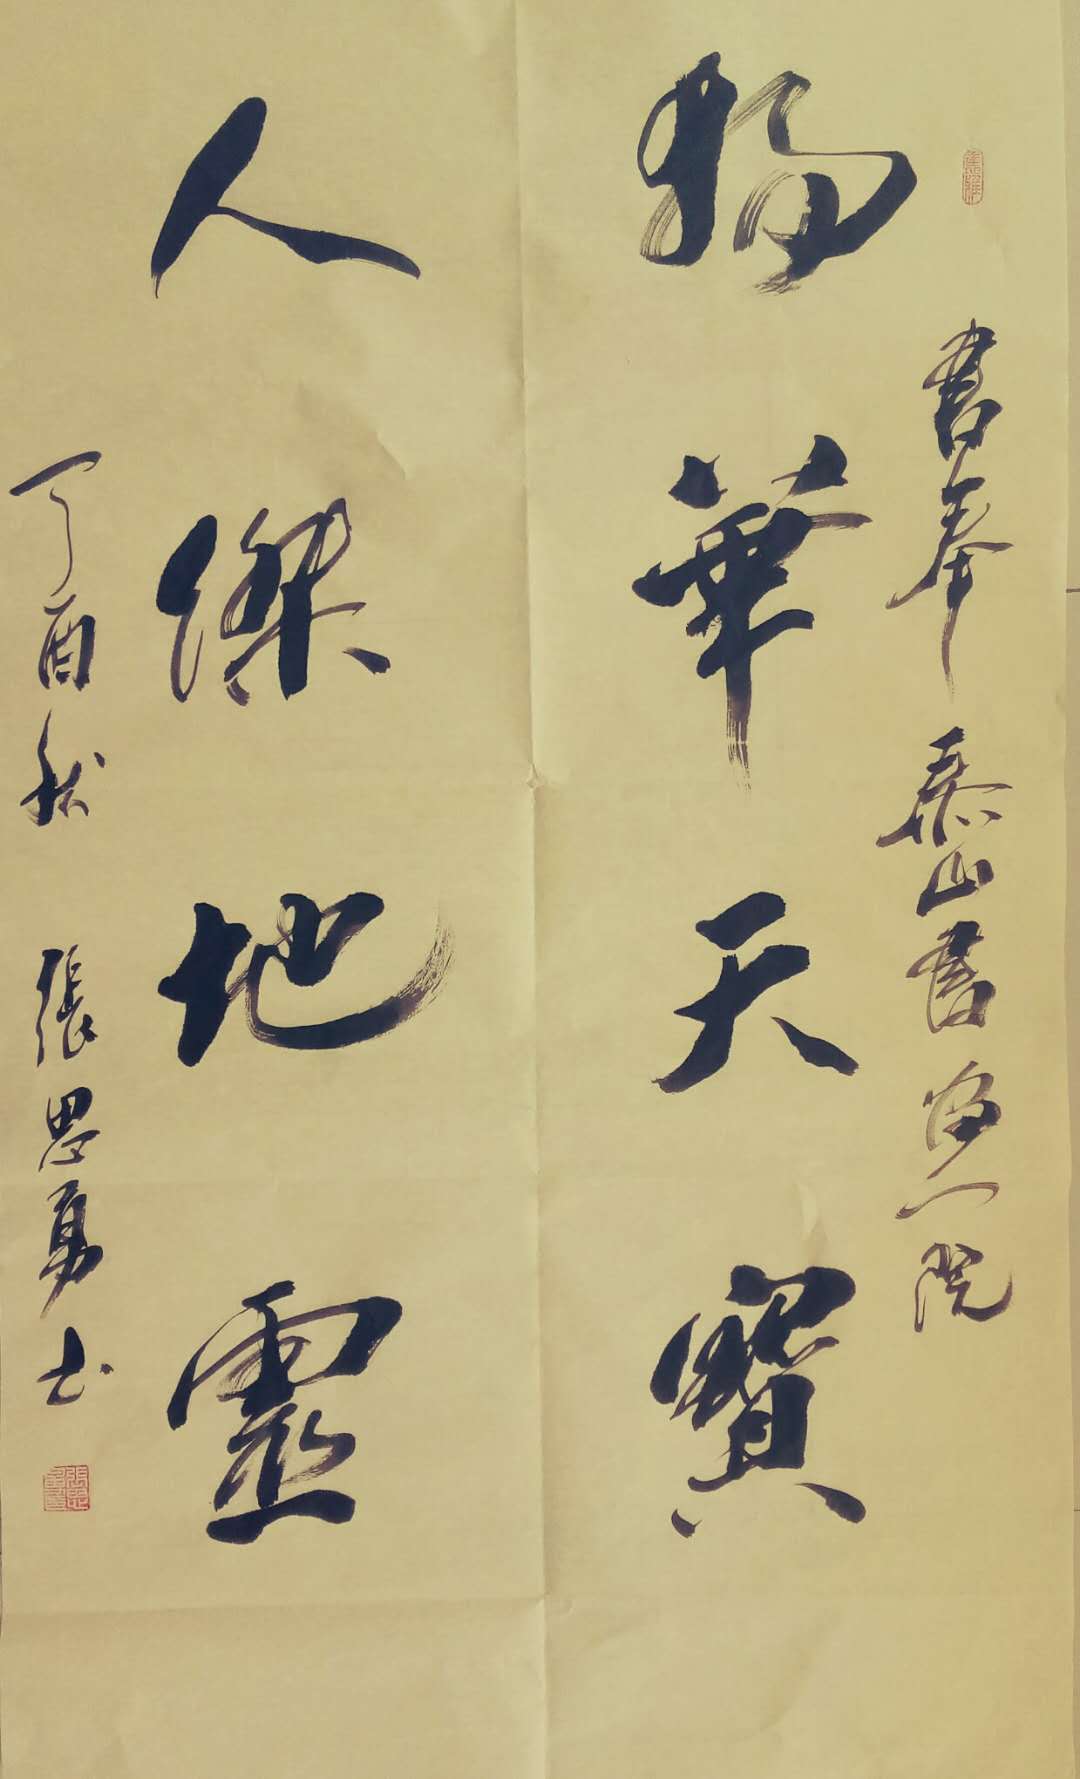 書奉泰山書画院
物華天寶
人傑地靈
丁酉秋 張思勇书